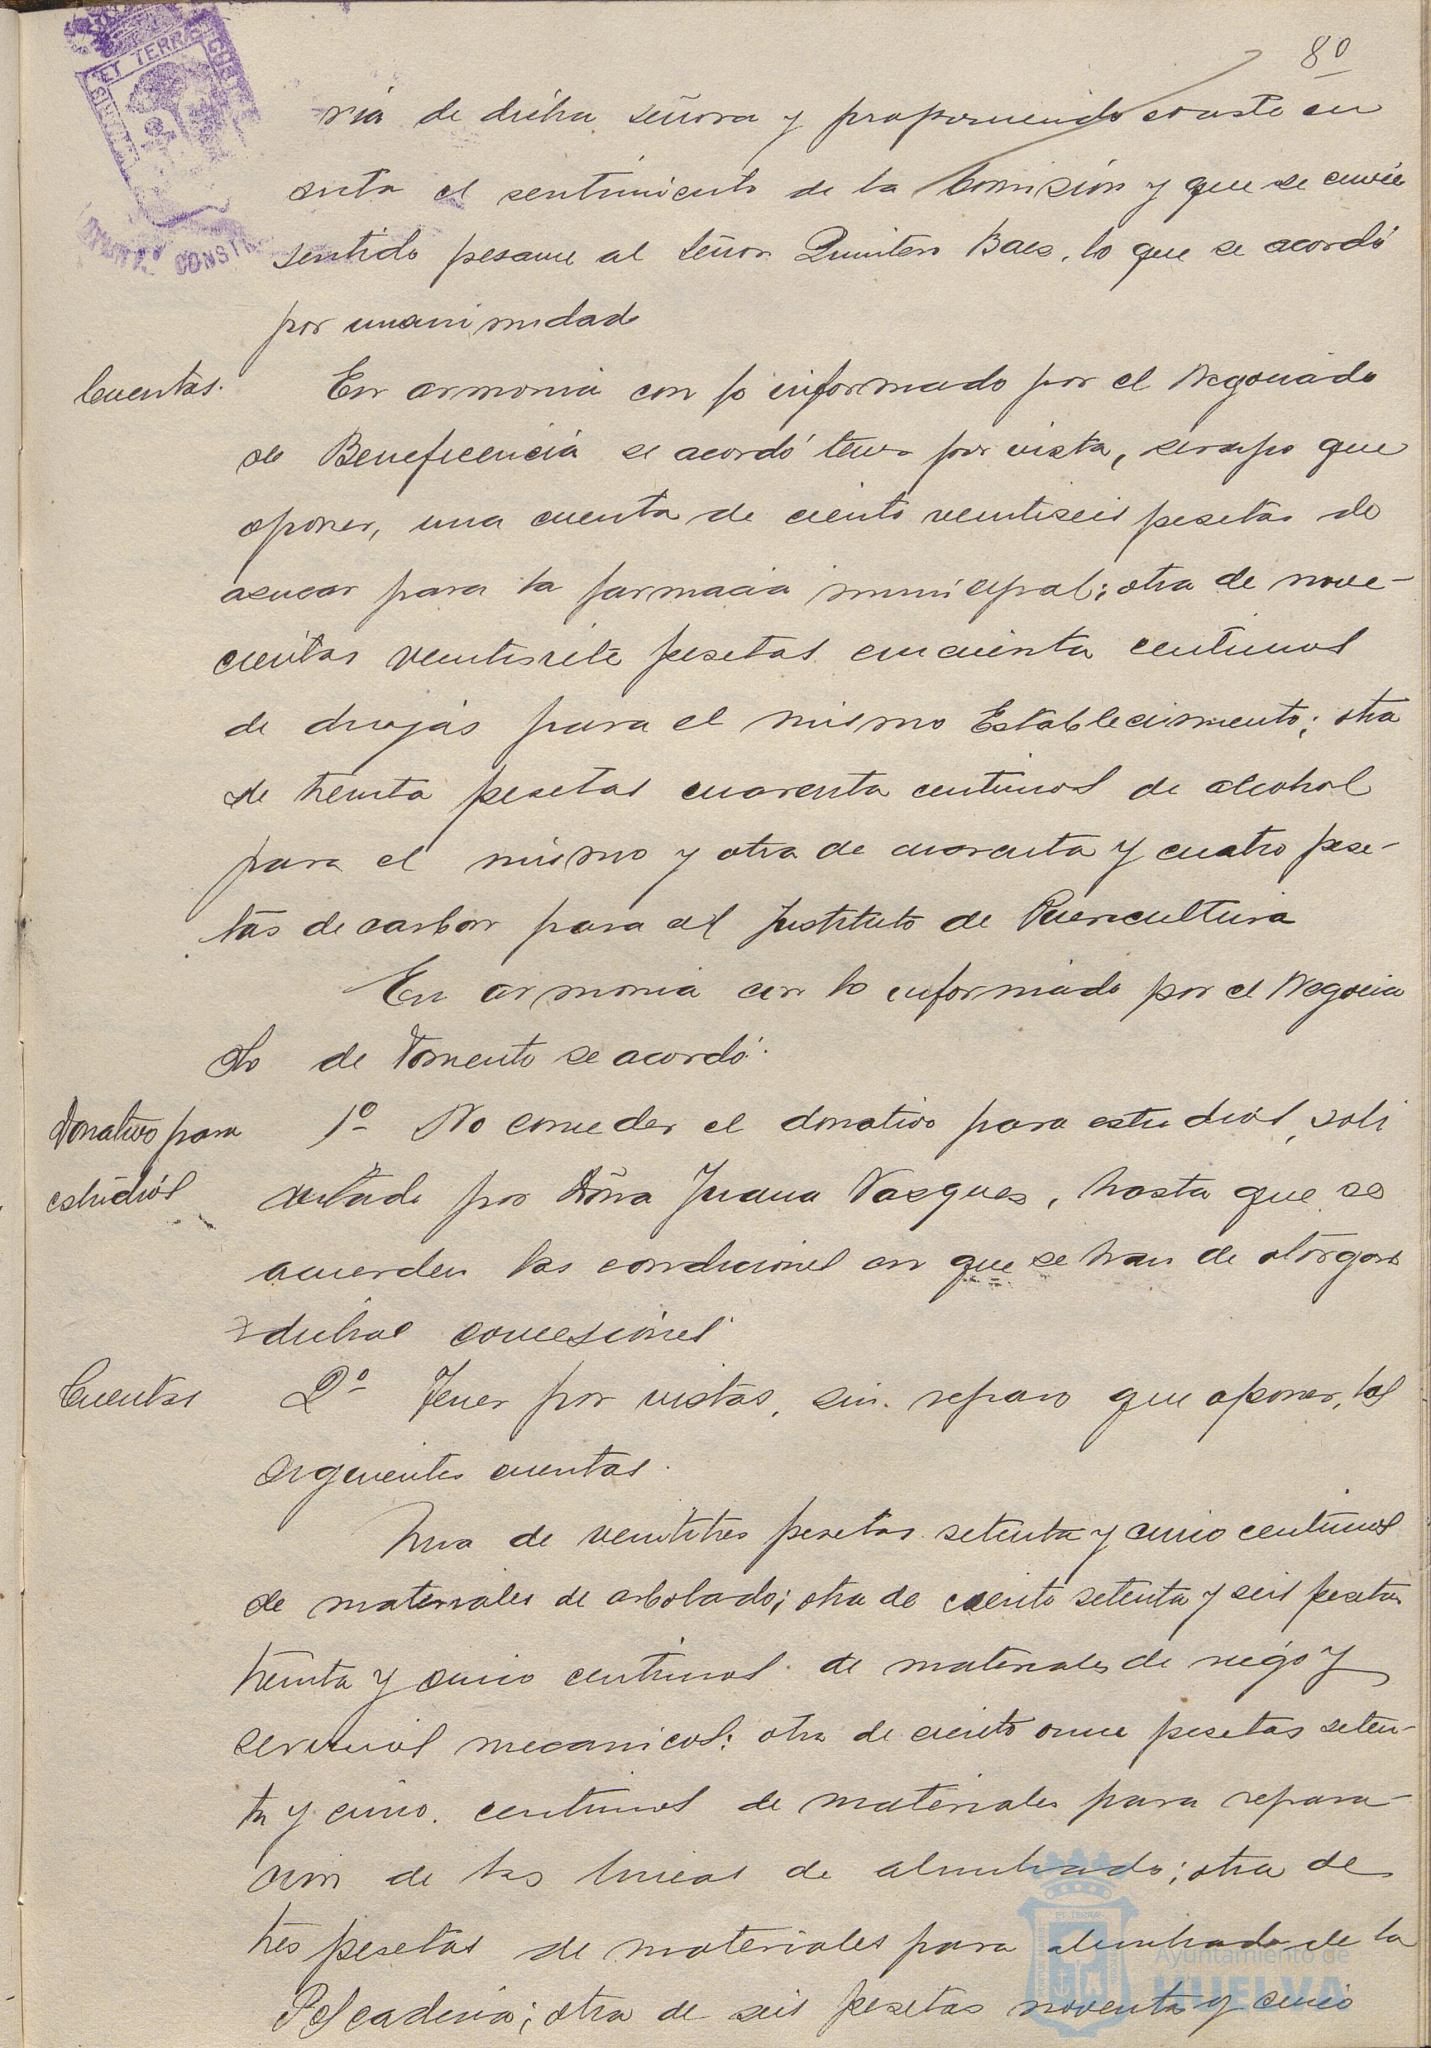 80
ria de dicha señora y proponiendo conste en
acta el sentimiento de la Comisión y que se envie
sentido pesame al señor Quintero Baez, lo que se acordó
por unanimidad
Cuentas. En armonia con lo informado por el Negociado
de Beneficencia se acordó tener por vista, sin reparo que
oponer, una cuenta de ciento veintiseis pesetas de
azucar para la farmacia municipal; otra de nove-
cientas veintisiete pesetas cincuenta centimos
de drogas para el mismo Establecimiento; otra
de treinta pesetas cuarenta centimos de alcohol
para el mismo y otra de cuarenta y cuatro pese-
tas de carbon para el Instituto de Puericultura
En armonia con lo informado por el Negocia
do de Fomento se acordó:
Donativo para 1º No conceder el donativo para estudios, soli
estudios citado por Doña Juana Vazquez, hasta que se
acuerden las condiciones en que se han de otorgar
dichas concesiones
Cuentas 2º Tener por vistas, sin reparo que oponer, las
siguientes cuentas.
Una de veintitres pesetas setenta y cinco centimos
de materiales de arbolado; otra de ciento setenta y seis pesetas
treinta y cinco centimos de materiales de riego y
servicios mecanicos; otra de ciento once pesetas seten-
ta y cinco centimos de materiales para repara-
cion de las lineas de alumbrado; otra de
tres pesetas de materiales para alumbrado de la
Pescaderia; otra de seis pesetas noventa y cinco
ET TERRÆ
CONST
Ayuntamiento de
HUELVA